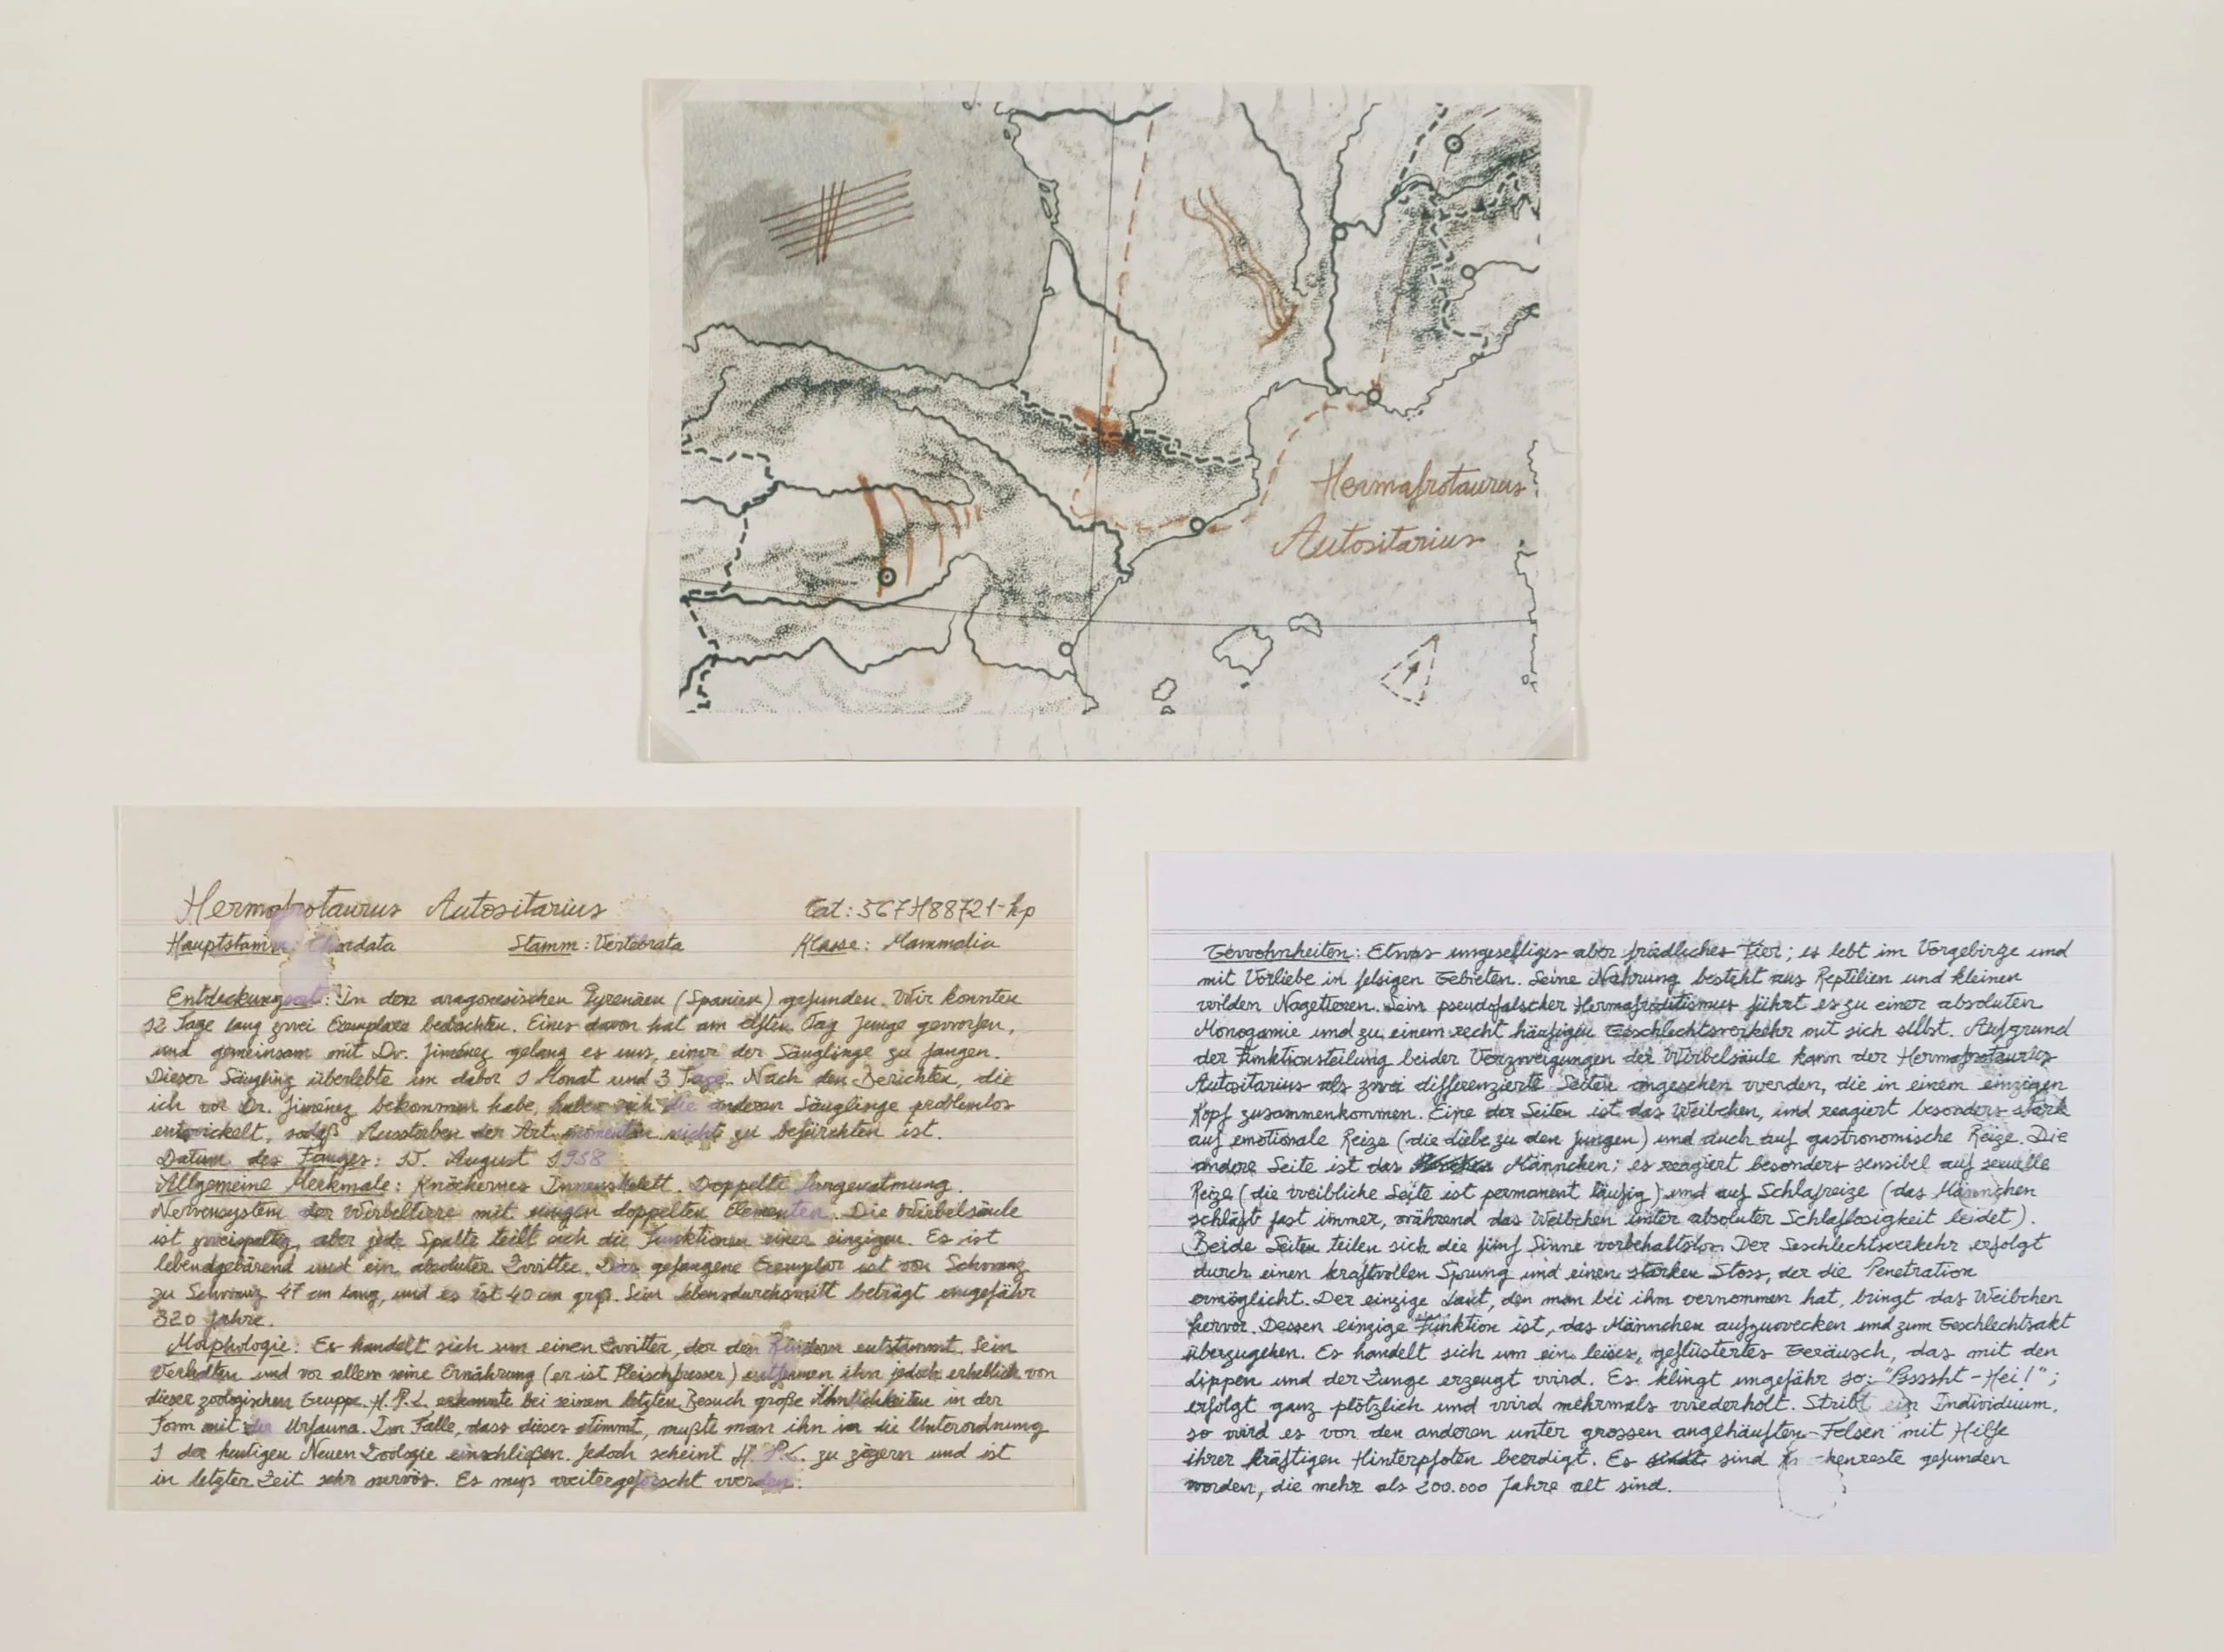 Hermafrotaurus
Autositarius
Hermafrotaurus Autositarius Cat: 567H88721-hp
Hauptstamm: Chordata Stamm: Vertebrata Klasse: Mammalia
Entdeckungsort: In den aragonesischen Pyrenäen (Spanien) gefunden. Wir konnten
12 Tage lang zwei Exemplare beobachten. Eines davon hat am elften Tag Junge geworfen,
und gemeinsam mit Dr. Jiménez gelang es uns, einer der Säuglinge zu fangen.
Dieser Säugling überlebte im Labor 1 Monat und 3 Tage. Nach den Berichten, die
ich vor Dr. Jiménez bekommen habe, haben sich die anderen Säuglinge problemlos
entwickelt, sodaß Aussterben der Art momentan nicht zu befürchten ist.
Datum des Fanges: 15. August 1958
Allgemeine Merkmale: Knöchernes Innenskelett. Doppelte Lungenatmung.
Nervensystem der Wirbeltiere mit einigen doppelten Elementen. Die Wirbelsäule
ist zweispaltig, aber jede Spalte teilt sich die Funktionen einer einzigen. Es ist
lebendgebärend und ein absoluter Zwitter. Das gefangene Exemplar ist von Schwanz
zu Schwanz 47 cm lang, und es ist 40 cm groß. Sein Lebensdurchsnitt beträgt ungefähr
320 Jahre.
Morphologie: Es handelt sich um einen Zwitter, der den Rindern entstammt. Sein
Verhalten und vor allem seine Ernährung (er ist Fleischfresser) entfernen ihn jedoch erheblich von
dieser zoologischen Gruppe. H.P.L. erkannte bei seinem letzten Besuch große Ähnlichkeiten in der
Form mit der Urfauna. Im Falle, dass dieses stimmt, mußte man ihn in die Unterordnung
1 der heutigen Neuen Zoologie einschließen. Jedoch scheint H.P.L. zu zögern und ist
in letzter Zeit sehr nervös. Es muß weitergeforscht werden.
Gewohnheiten: Etwas ungeselliges aber friedliches Tier; es lebt im Vorgebirge und
mit Vorliebe in felsigen Gebieten. Seine Nahrung besteht aus Reptilien und kleinen
wilden Nagetieren. Sein pseudofalscher Hermafroditismus führt es zu einer absoluten
Monogamie und zu einem recht häufigen Geschlechtsverkehr mit sich selbst. Aufgrund
der Funktionsteilung beider Verzweigungen der Wirbelsäule kann der Hermafrotaurus
Autositarius als zwei differenzierte Seiten angesehen werden, die in einem einzigen
Kopf zusammenkommen. Eine der Seiten ist das Weibchen, und reagiert besonders stark
auf emotionale Reize (die Liebe zu den Jungen) und auch auf gastronomische Reize. Die
andere Seite ist das Männchen; es reagiert besonders sensibel auf sexuelle
Reize (die weibliche Seite ist permanent läufig) und auf Schlafreize (das Männchen
schläft fast immer, während das Weibchen unter absoluter Schlaflosigkeit leidet).
Beide Seiten teilen sich die fünf Sinne vorbehaltslos. Der Geschlechtsverkehr erfolgt
durch einen kraftvollen Sprung und einen starken Stoss, der die Penetration
ermöglicht. Der einzige Laut, den man bei ihm vernommen hat, bringt das Weibchen
hervor. Dessen einzige Funktion ist, das Männchen aufzuwecken und zum Geschlechtsakt
überzugehen. Es handelt sich um ein leises, geflüstertes Geräusch, das mit den
Lippen und der Zunge erzeugt wird. Es klingt ungefähr so: "Bsssht-Hei!";
erfolgt ganz plötzlich und wird mehrmals wiederholt. Stribt ein Individuum,
so wird es von den anderen unter grossen angehäuften Felsen mit Hilfe
ihrer kräftigen Hinterpfoten beerdigt. Es sind -kenreste gefunden
worden, die mehr als 200.000 Jahre alt sind.